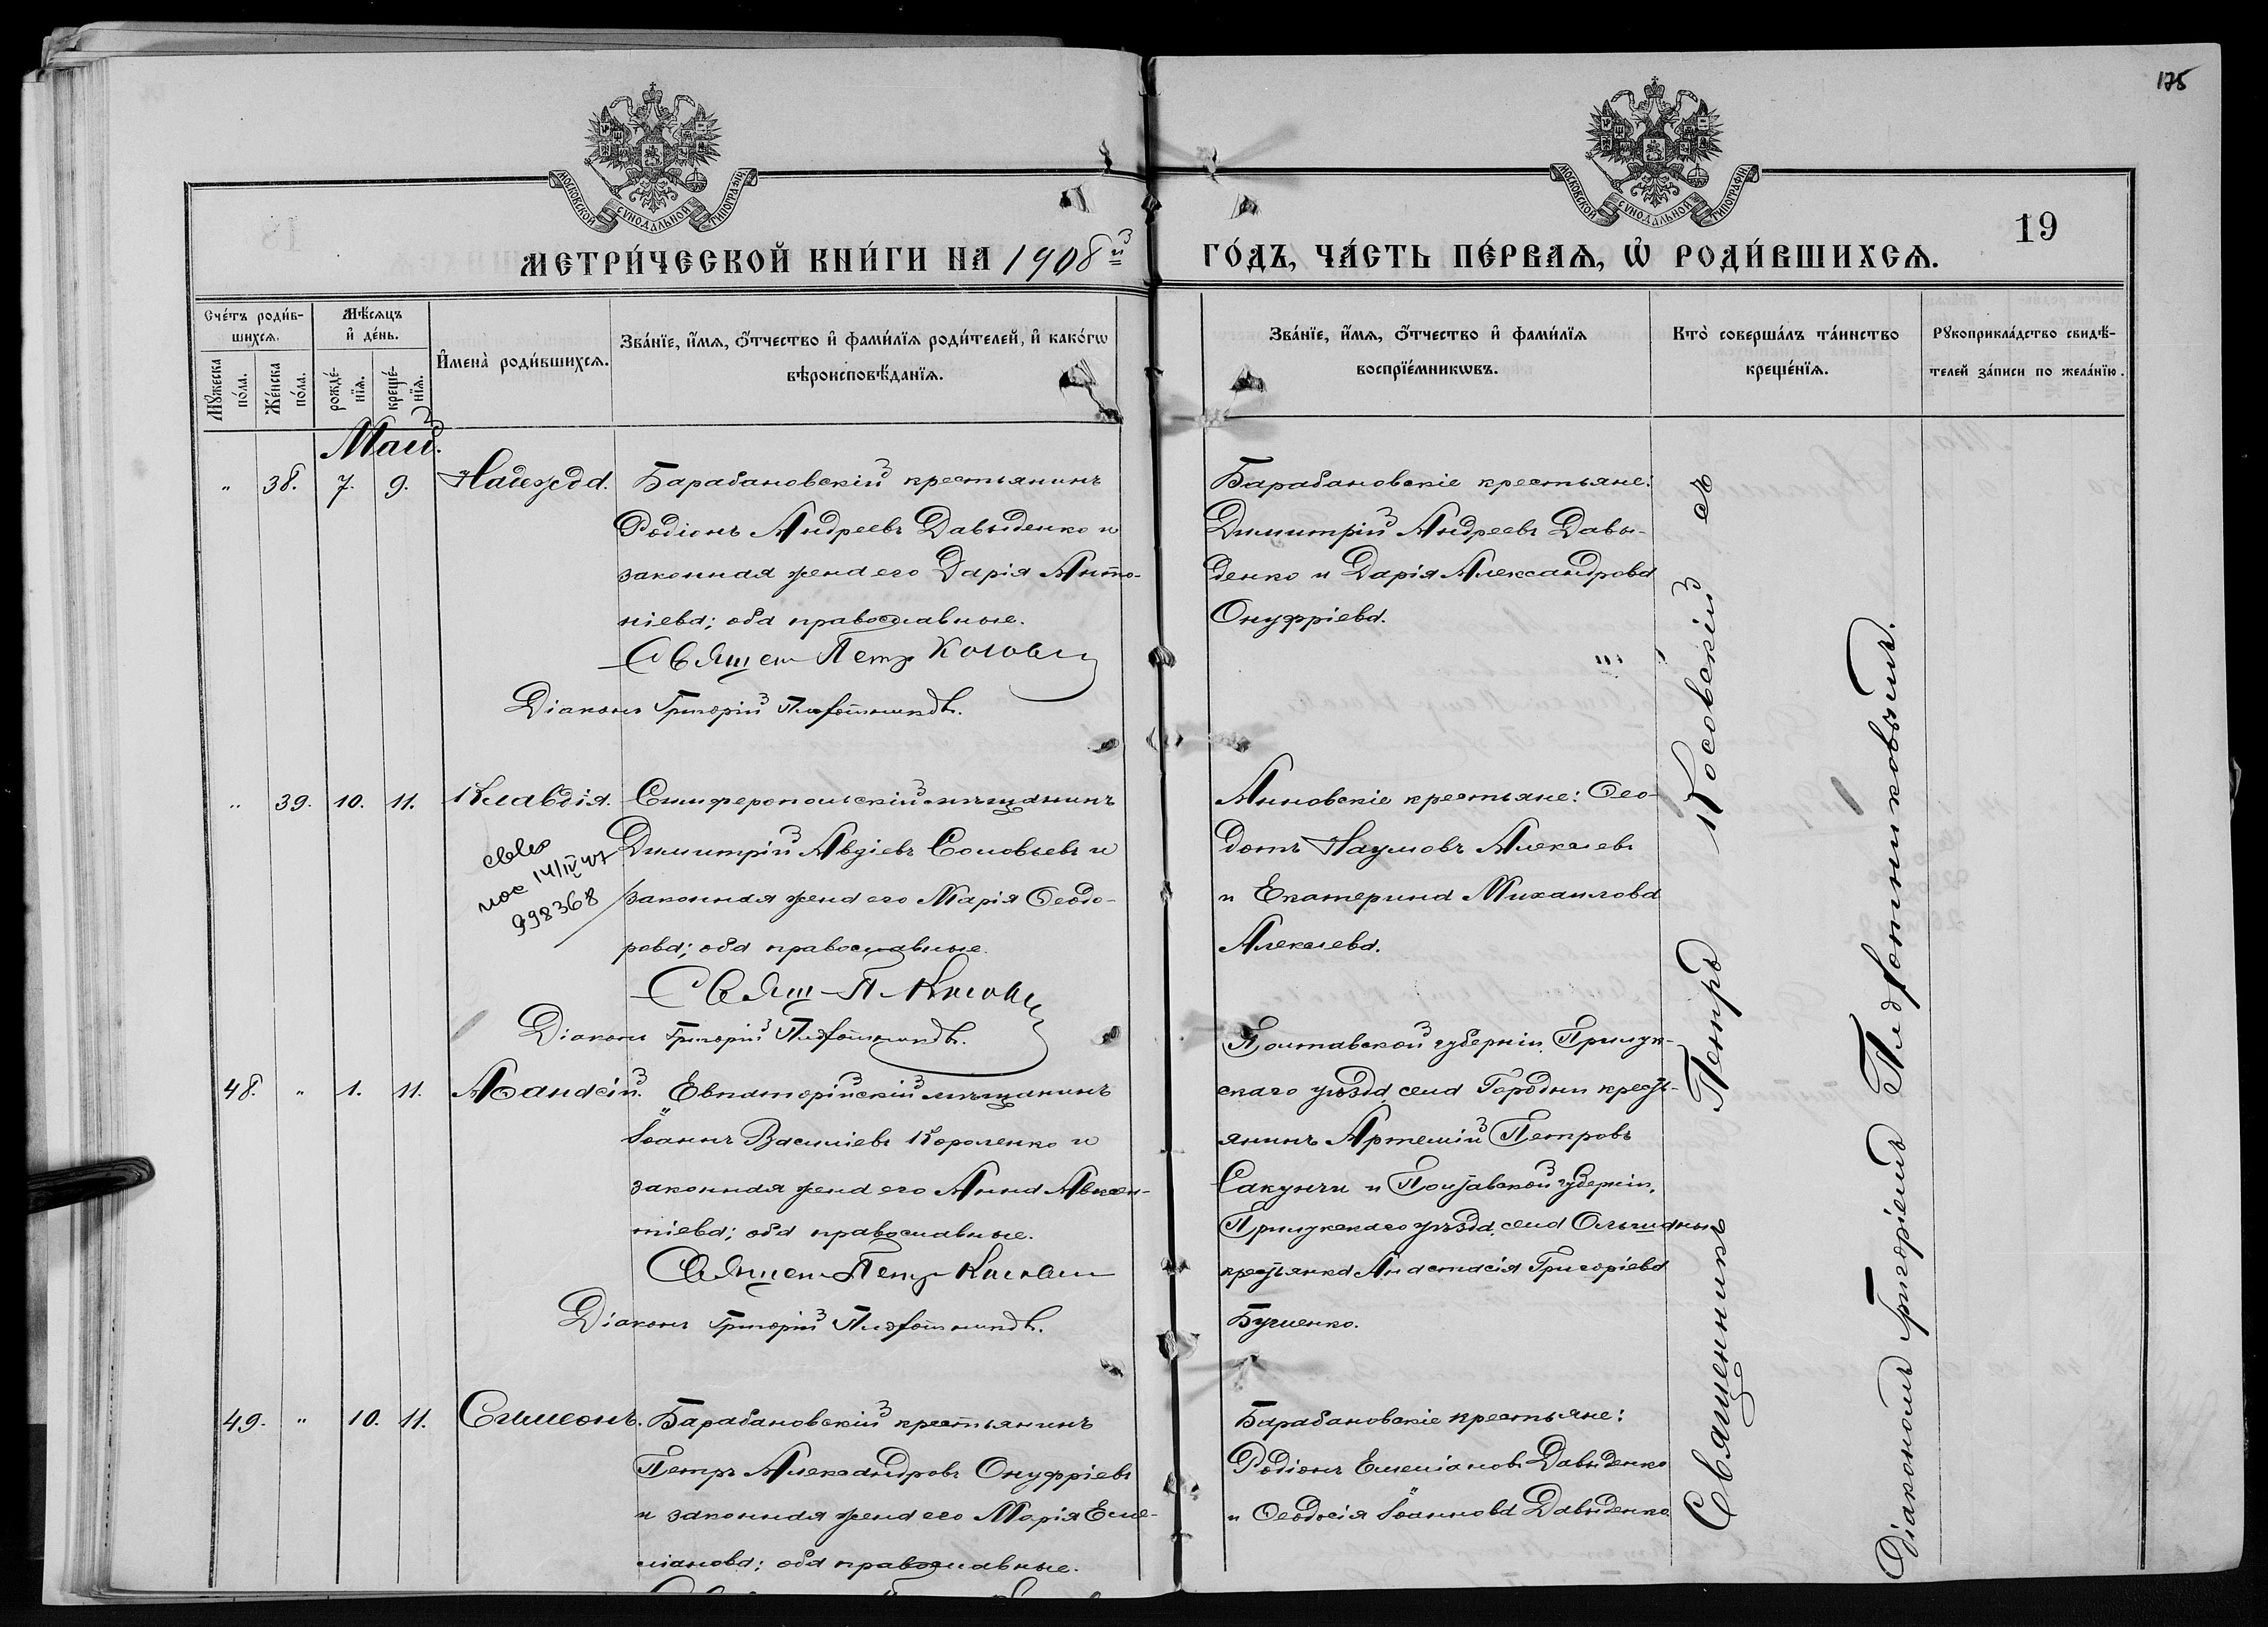 175
МОСКОВСКОЙ СУНОДАЛЬНОЙ ТИПОГРАФІИ
МОСКОВСКОЙ СУНОДАЛЬНОЙ ТИПОГРАФІИ
19
МЕТРИ́ЧЕСКОЙ КНИ́ГИ НА 1908й
ГО́ДЪ, ЧА́СТЬ ПЕ́РВАѦ, Ѡ҆ РОДИ́ВШИХСѦ.
Счéтъ роди́в-
шихсѧ.
Мꙋ́жеска
по́ла.
Же́нска
по́ла.
Мѣ́сѧцъ
и҆ де́нь.
рожде́-
нїѧ.
креще́-
нїѧ.
И҆мена̀ роди́вшихсѧ.
Зва́нїе, и҆́мѧ, ѻ҆́тчество и҆ фами́лїѧ роди́телей, и҆ како́гѡ
вѣроисповѣ́данїѧ.
Зва́нїе, и҆́мѧ, ѻ҆́тчество и҆ фами́лїѧ
воспрїе́мникѡвъ.
Кто̀ соверша́лъ та́инство
креще́нїѧ.
Рꙋкоприкла́дство свидѣ́-
телей за́писи по жела́нїю.
Май.
„ 38. 7. 9. Надежда. Барабановскій крестьянинъ
Родіонъ Андреевъ Давыденко и
законная жена его Дарія Анто-
ніева; оба православные.
Священ Петр Косовск
Діаконъ Григорій Плотниковъ.
Барабановскіе крестьяне:
Димитрій Андреевъ Давы-
денко и Дарія Александрова
Онуфріева.
„ 39. 10. 11. Клавдія. Симферопольскій мѣщанинъ
Димитрій Авдіевъ Соловьевъ и
законная жена его Марія Ѳеодо-
рова; оба православные.
14/IV 47
998368
Свящ П Косовск
Діаконъ Григорій Плотниковъ.
Анновскіе крестьяне: Ѳео-
дотъ Наумовъ Алекаевъ
и Екатерина Михаилова
Алекаева.
48. „ 1. 11. Аѳанасій. Евпаторійскій мѣщанинъ
Іоаннъ Василіевъ Короленко и
законная жена его Анна Авксен-
тіева; оба православные.
Священ Петр Косовск
Діаконъ Григорій Плотниковъ.
Полтавской губерніи, Прилук-
скаго уѣзда, села Городни кресть-
янинъ Артемій Петровъ
Сакунъ и Полтавской губерніи,
Прилукскаго уѣзда, села Ольшаны
крестьянка Анастасія Григоріева
49. „ 10. 11. Симеонъ. Барабановскій крестьянинъ
Петръ Александровъ Онуфріевъ
и законная жена его Марія Еме-
ліанова; оба православные.
Барабановскіе крестьяне:
Родіонъ Емеліановъ Давыденко
и Ѳеодосія Іоаннова Давыденко
Священникъ Петръ Косовскій съ
Діакономъ Григоріемъ Плотниковымъ.